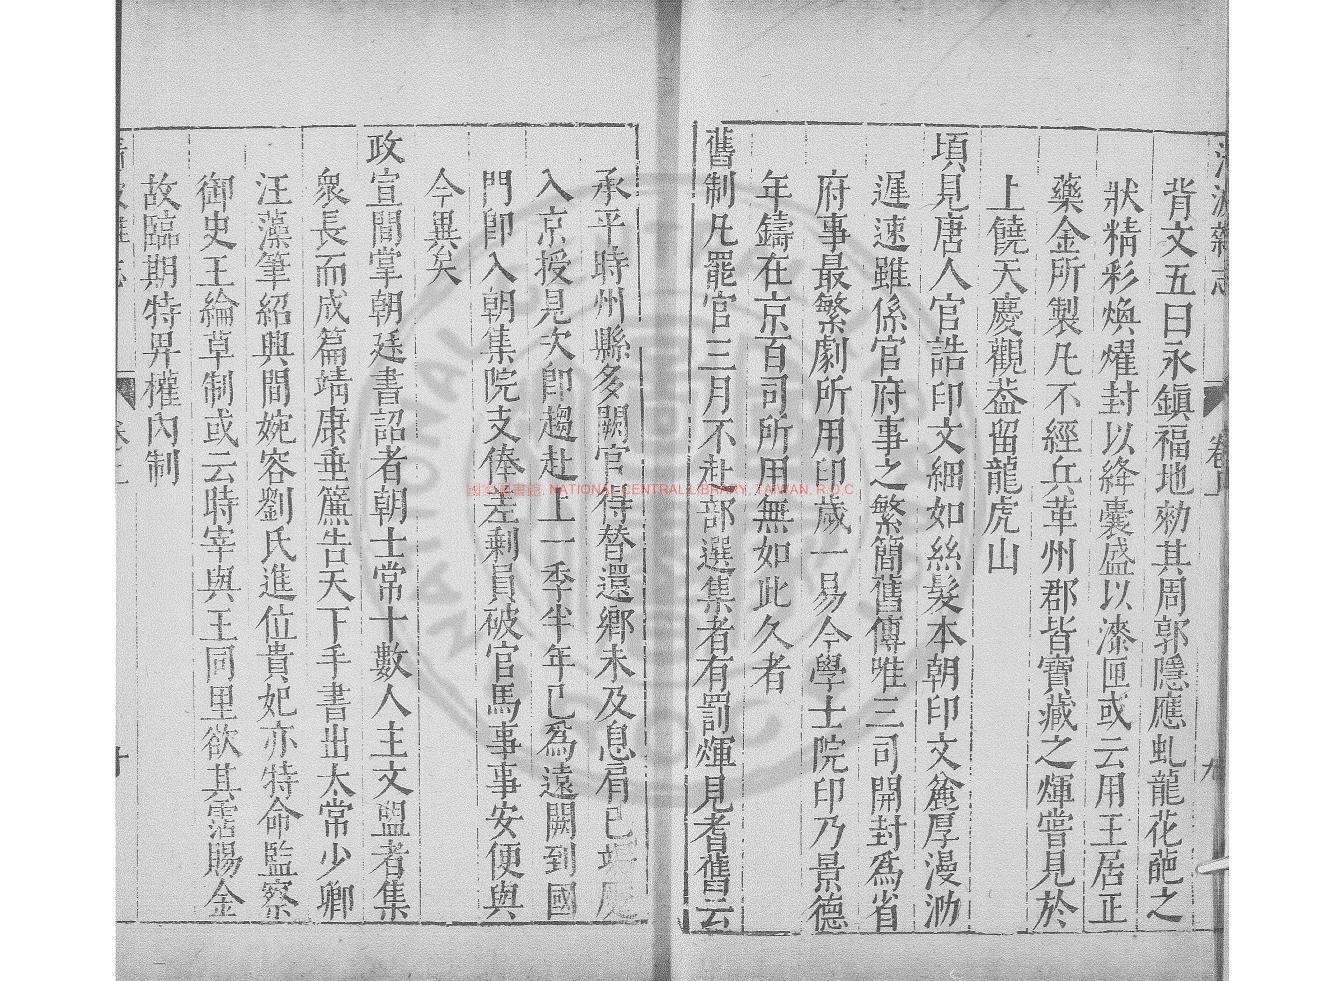 清波雜志 卷上 九
背文五曰永鎮福地勑其周郭隱應虬龍花葩之
狀精彩煥燿封以絳囊盛以漆匣或云用王居正
藥金所製凡不經兵革州郡皆寶藏之煇嘗見於
上饒天慶觀葢留龍虎山
頃見唐人官誥印文細如絲髮本朝印文麄厚漫泐
遲速雖係官府事之繁簡舊傳唯三司開封爲省
府事最繁劇所用印歲一易今學士院印乃景德
年鑄在京百司所用無如此久者
舊制凡罷官三月不赴部選集者有罰煇見耆舊云
承平時州縣多闕官得替還鄉未及息肩已竭
入京授見次卽趨赴上一季半年已爲遠闕到國
門卽入朝集院支俸差剩員破官馬事事安便與
今異矣
政宣間掌朝廷書詔者朝士常十數人主文盟者集
衆長而成篇靖康垂簾告天下手書出太常少卿
汪藻筆紹興間婉容劉氏進位貴妃亦特命監察
御史王綸草制或云時宰與王同里欲其霑賜金
故臨期特畀權內制
國家圖書館, NATIONAL CENTRAL LIBRARY, TAIWAN, R.O.C.